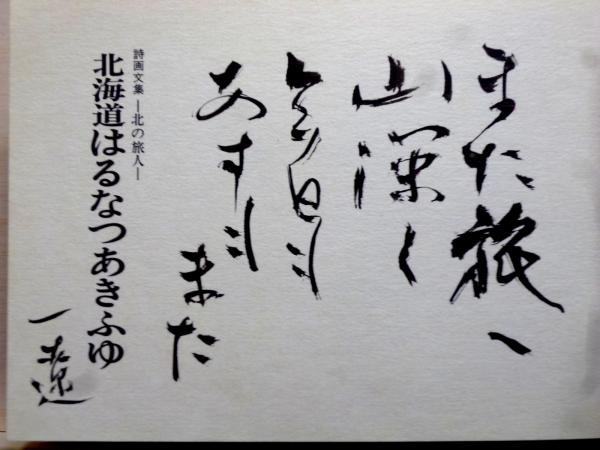 また旅へ
山深く
今日も
あすも
また
詩画文集―北の旅人―
北海道はるなつあきふゆ